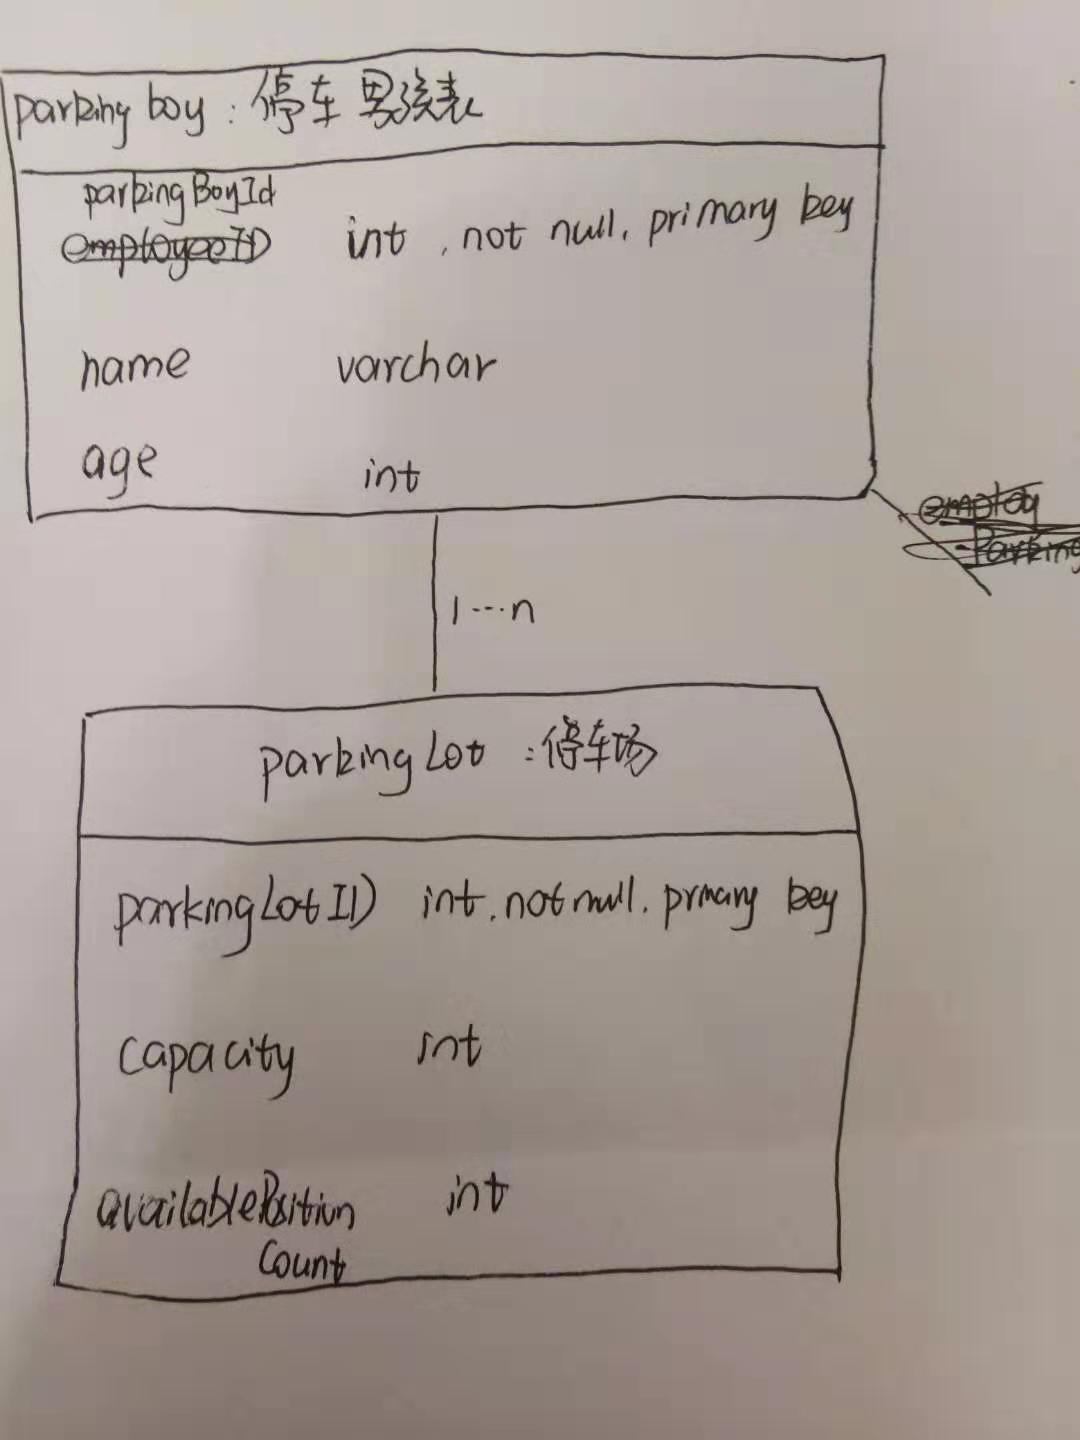 parking boy : 停车男孩表
parkingBoyId
employeeID int , not null, primary key
name varchar
age int
employ
Parking
1...n
parkingLot : 停车场
parkingLotID int, not null, primary key
capacity int
availablePosition int
Count